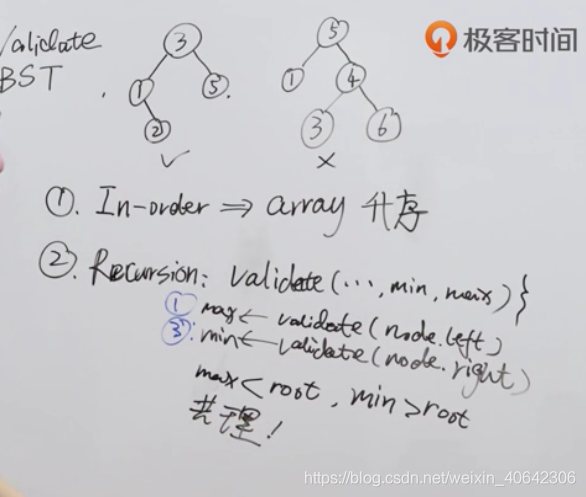 Validate
BST
3
1
5
2
✓
5
1
4
3
6
×
极客时间
①. In-order ⇒ array 升序
②. Recursion: validate(..., min, max) }
① max ← validate(node.left)
③: min ← validate(node.right)
max < root, min > root
https://blog.csdn.net/weixin_40642306